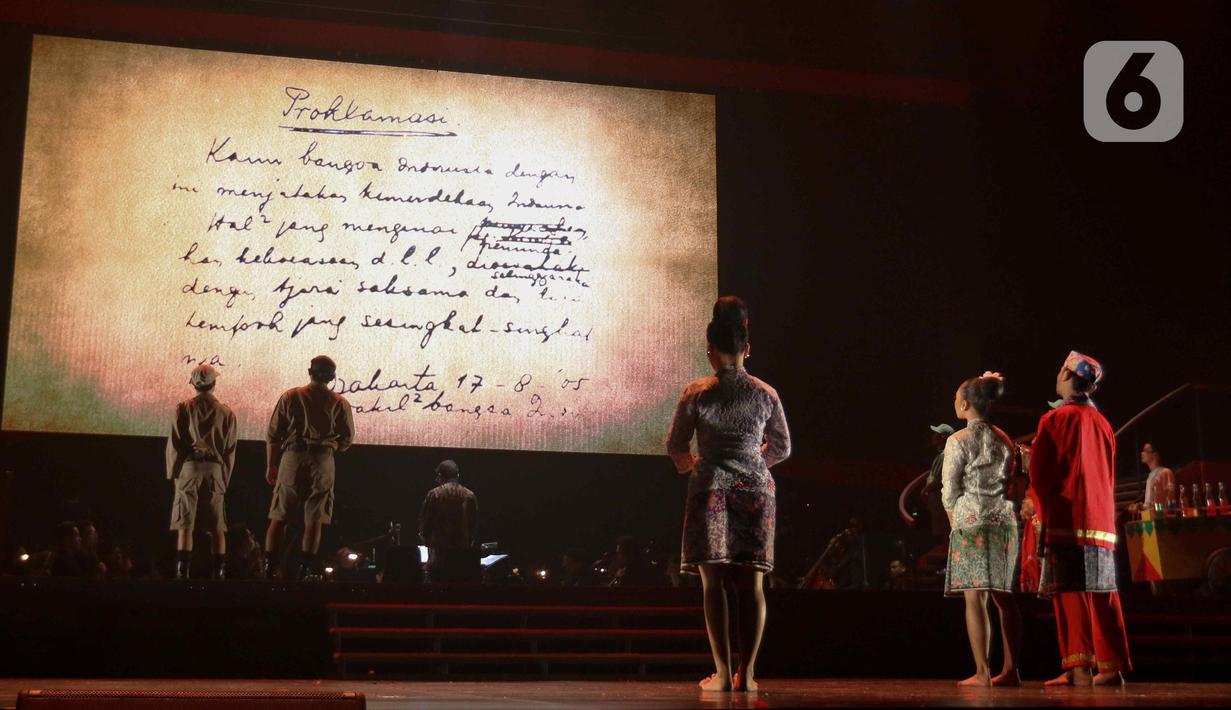 Proklamasi.
Kami bangsa Indonesia dengan
ini menjatakan kemerdekaan Indonesia
Hal² jang mengenai
peminda-
kan kekoeasaan d.l.l.,
dengan tjara saksama dan
tempoh jang sesingkat-singkat
nja.
Djakarta 17-8-'05
Wakil² bangsa
6